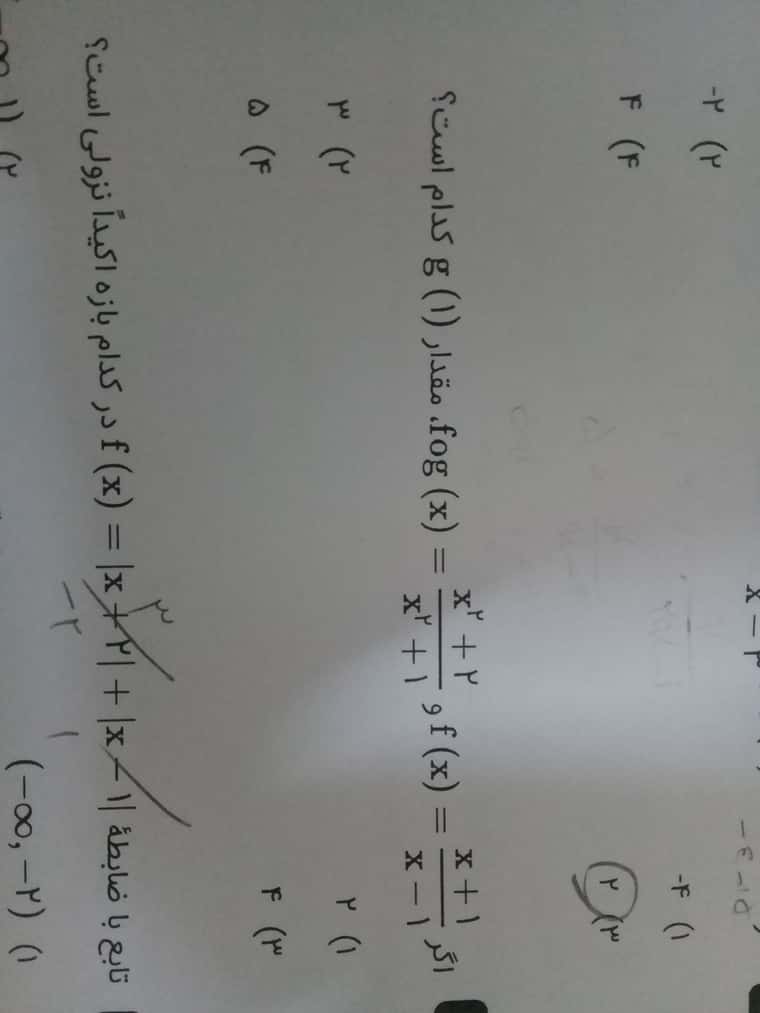 x - ۳
- ۴ - ۱۵
۱) -۴ ۲) -۲
۳) ۲ ۴) ۴
اگر f (x) = (x + ۱)/(x - ۱) و fog (x) = (x^۲ + ۲)/(x^۲ + ۱)، مقدار g (۱) کدام است؟
۱) ۲ ۲) ۳
۳) ۴ ۴) ۵
تابع با ضابطهٔ f (x) = |x + ۲| + |x - ۱| در کدام بازه اکیداً نزولی است؟
-۲ ۱ ۳
۱) (-∞, -۲) ۲) (-∞, ۱)